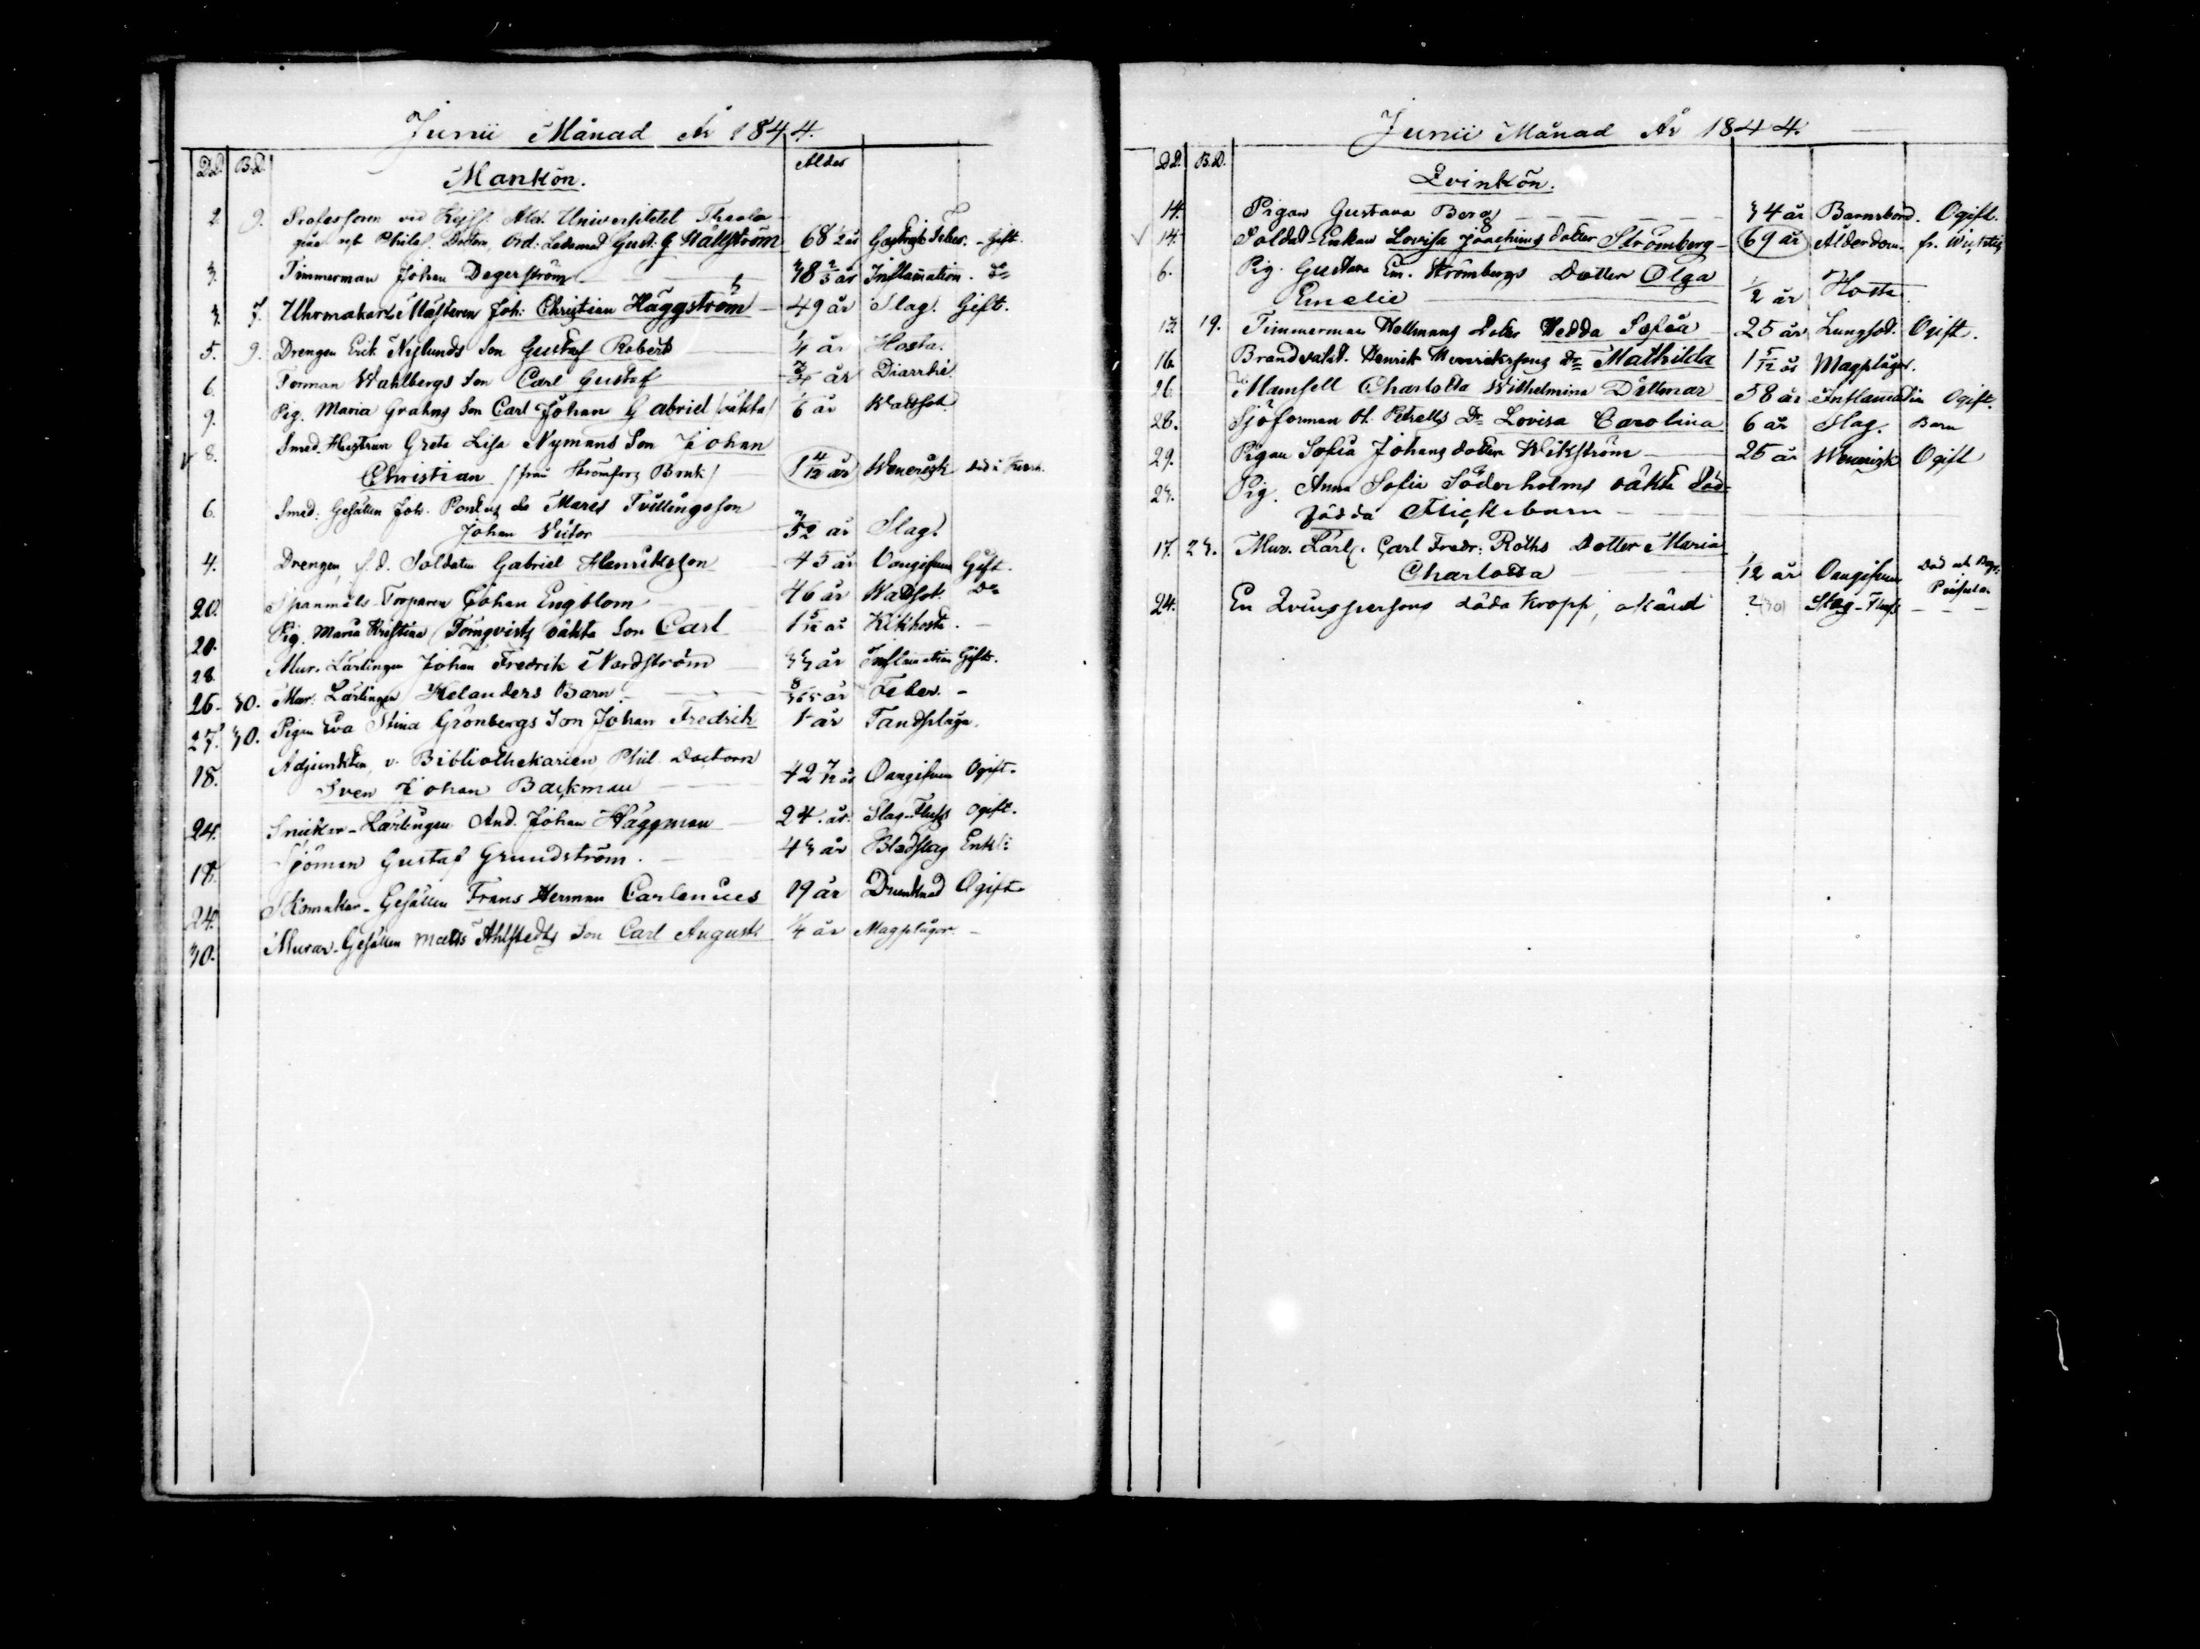 Junii Månad År 1844.
D.D. B.D. Mankön. Ålder
2. 9. Professoren vid Kejs. Alex. Universitetet Theolo-
giæ och Philos. Doctorn, Ord. Ledamot Gust. G Hällström 68 1/2 år Gastrisk Feber. - Gift.
3. Timmerman Johan Degerström 38 2/3 år Inflamation. Do
3. 7. Uhrmakare Mästaren Joh: Christian Häggström 49 år Slag. Gift.
5. 9. Drengen Erik Niglunds Son Gustaf Robert 1/4 år Hosta.
6. Forman Wahlbergs Son Carl Gustaf år Diarrhé
9. Pig. Maria Grahns Son Carl Johan Gabriel /oäkta/ 1/6 år Wattsot.
v 8. Smed. Hustrun Greta Lisa Nymans Son Johan
Christian /från Strömfors Bruk/ 1 4/12 år Wenerisk
6. Smed: Gesällen Joh. Tvillingsson
Johan Victor 3/52 år Slag.
4. Drengen, f.d. Soldaten Gabriel Henriksson 45 år Oangifven Gift.
20. Spanmåls-Torparen Johan Engblom 46 år Wattsot. Do
20. Pig. Maria Kristina Törnqvists oäkta Son Carl 1 5/12 år Kikhosta. -
28. Mur. Lärlingen Johan Fredrik Nordström 33 år Inflamation Gift.
26. 30. Mur: Lärlingen Helanders Barn 8/365 år Feber. -
27. 30. Pigan Eva Stina Grönbergs Son Johan Fredrik 1 år Tandplåga.
18. Adjunkten, v. Bibliothekarien, Phil. Doctorn
Sven Johan Backman 42 7/12 år Oangifven Ogift.
24. Snickar-Lärlingen And. Johan Häggman 24 år. Slag-Fluss Ogift.
18. Sjöman Gustaf Grundström. 43 år Blodslag Enkl:
24. Skomakar-Gesällen Frans Herman Carlenius 19 år Drunknad Ogift
30. Murar-Gesällen Matts Ahlstedts Son Carl August 1/4 år Magplågor. -
Junii Månad År 1844.
D.D. B.D. Qvinkön.
14. Pigan Gustava Berg 34 år Barnsbörd. Ogift.
v 14. Soldat-Enkan Lovisa Joachims dotter Strömberg 69 år Ålderdom. fr. Wichtis
6. Pig. Gustava Em. Strömbergs Dotter Olga
Emelie 1/2 år Hosta
13. 19. Timmerman Hellmans Dotter Hedda Sofia 25 år Lungsot. Ogift.
16. Brandvakt. Henrik Henrikssons Dr Mathilda 1 5/12 år Magplågor.
26. Mamsell Charlotta Wilhelmina Dittmar 58 år Inflamation Ogift.
28. Sjöforman H. Petrells Dr Lovisa Carolina 6 år Slag. Barn
29. Pigan Sofia Johans dotter Wikström 25 år Wenerisk Ogift
23. Pig. Anna Sofia Söderholms oäkta Död-
födda Flickebarn
17. 23. Mur. Lärl. Carl Fredr: Roths Dotter Maria
Charlotta 1/12 år Oangifven
24. En Qvinspersons döda kropp, okänd Slag-Fluss - - -